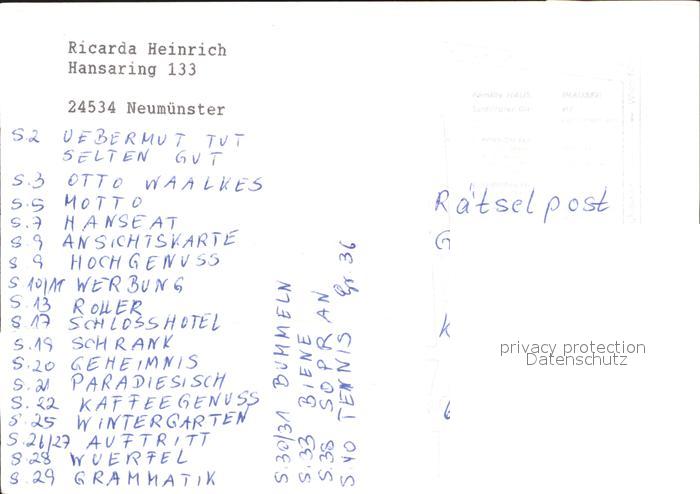 Ricarda Heinrich
Hansaring 133
24534 Neumünster
S.2 UEBERMUT TUT
SELTEN GUT
S.3 OTTO WAALKES
S.5 MOTTO
S.7 HANSEAT
S 9 ANSICHTSKARTE
S 9 HOCHGENUSS
S 10/11 WERBUNG
S.13 ROLLER
S.17 SCHLOSSHOTEL
S.19 SCHRANK
S.20 GEHEIMNIS
S.21 PARADIESISCH
S.22 KAFFEEGENUSS
S.25 WINTERGARTEN
S.26/27 AUFTRITT
S.28 WUERFEL
S.29 GRAMMATIK
S.30/31 BUMMELN
S.33 BIENE
S.38 SOPRAN
S.40 TENNIS Gr 36
Rätselpost
G
K
privacy protection
Datenschutz